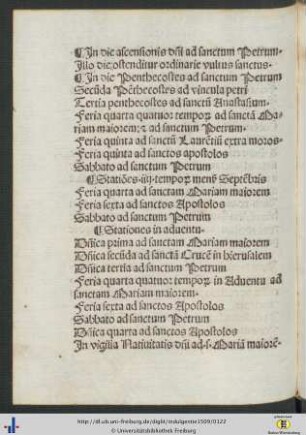 ¶ In die ascensionis dñi ad sanctum Petrum.
Illo die ostenditur ordinarie vultus sanctus.
¶ In die Penthecostes ad sanctum Petrum
Secũda Pẽthecostes ad vincula petri
Tertia penthecostes ad sanctũ Anastasium.
Feria quarta quatuor tempoꝝ ad sanctã Ma-
riam maiorem: ⁊ ad sanctum Petrum.
Feria quinta ad sanctũ Laurẽtiũ extra muros.
Feria quinta ad sanctos apostolos
Sabbato ad sanctum Petrum
¶ Statiões .iiij. tempoꝝ mens̃ Septẽbris
Feria quarta ad sanctam Mariam maiorem
Feria sexta ad sanctos Apostolos
Sabbato ad sanctum Petrum
¶ Stationes in aduentu.
Dñica prima ad sanctam Mariam maiorem
Dñica secũda ad sanctã Crucẽ in hierusalem
Dñica tertia ad sanctum Petrum
Feria quarta quatuor tempoꝝ in Aduentu ad
sanctam Mariam maiorem.
Feria sexta ad sanctos Apostolos
Sabbato ad sanctum Petrum
Dñica quarta ad sanctos Apostolos
In vigilia Natiuitatis dñi ad .s. Mariã maiorẽ.
http://dl.ub.uni-freiburg.de/diglit/indulgentie1509/0122
© Universitätsbibliothek Freiburg